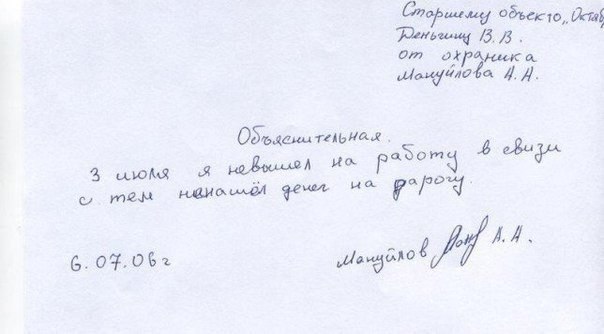 Старшему объекто „Октяб
Деньгину В.В.
от охраника
Мануйлова А.А.
Объяснительная.
3 июля я невышел на работу в свизи
с тем нанашёл денег на дарогу.
6.07.06 г
Мануйлов А.А.